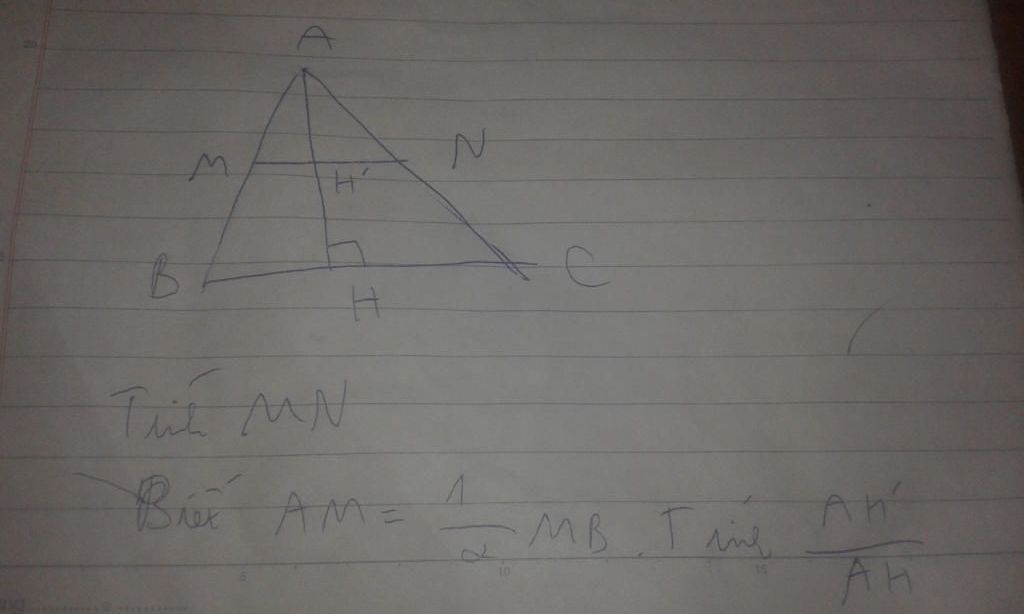 A
M
N
H'
B
H
C
Tính MN
Biết AM = 1/2 MB. Tính AH'/AH
5
10
15